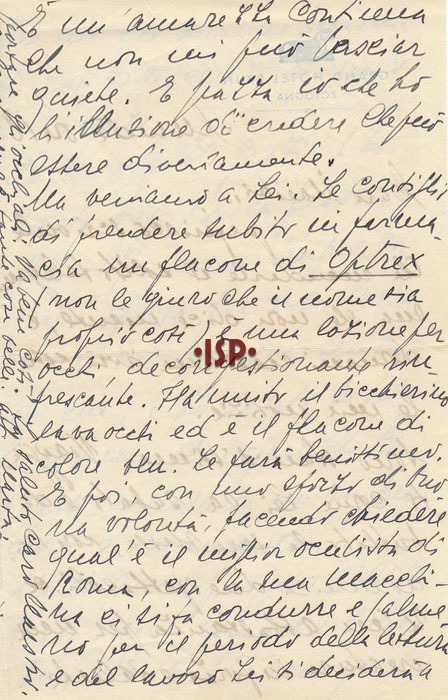 È un'amarezza continua
che non mi può lasciar
quiete. E pazza io che ho
l'illusione di credere che può
essere diversamente.
Ma veniamo a Lei. Le consiglio
di prendere subito in farma
cia un flacone di Optrex
(non le giuro che il nome sia
proprio così) è una lozione per
occhi, decongestionante rin
frescante. Ha unito il bicchierino
lavaocchi ed è il flacone di
colore blu. Le farà benissimo.
E poi con uno sforzo di buo
na volontà, facendo chiedere
qual'è il miglior oculista di
Roma, con la sua macchi-
na ci si fa condurre e almeno
no per il periodo della lettura
e del lavoro Lei si deciderà a
·ISP·
occhiali: va bene così. La saluto caro Maestro.